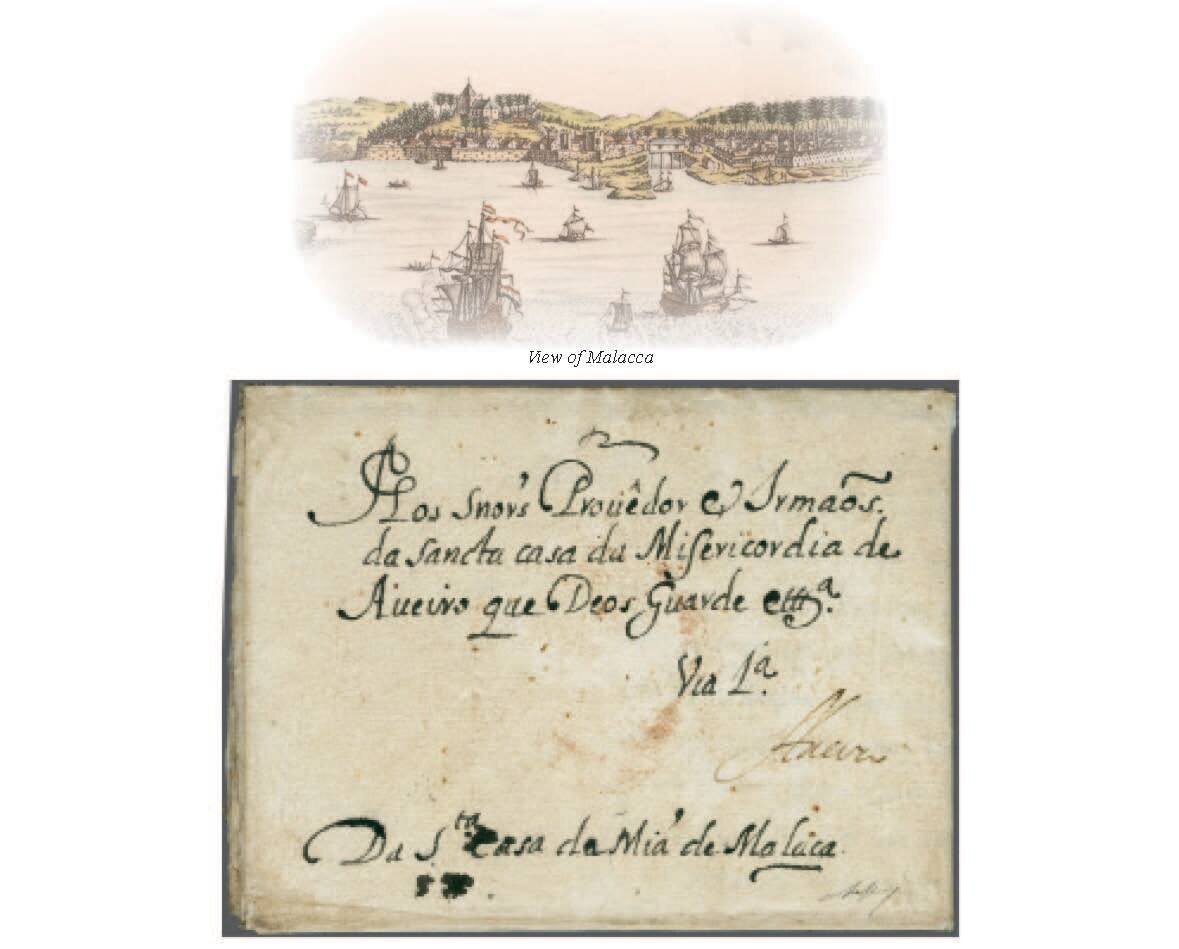 View of Malacca
Aos Snor's Prouêdor e Irmaõs.
da sancta casa da Misericordia de
Aueiro que Deos Guarde ettª.
Via 1ª.
Aueiro
Da S.ta Casa de Miª de Malaca.